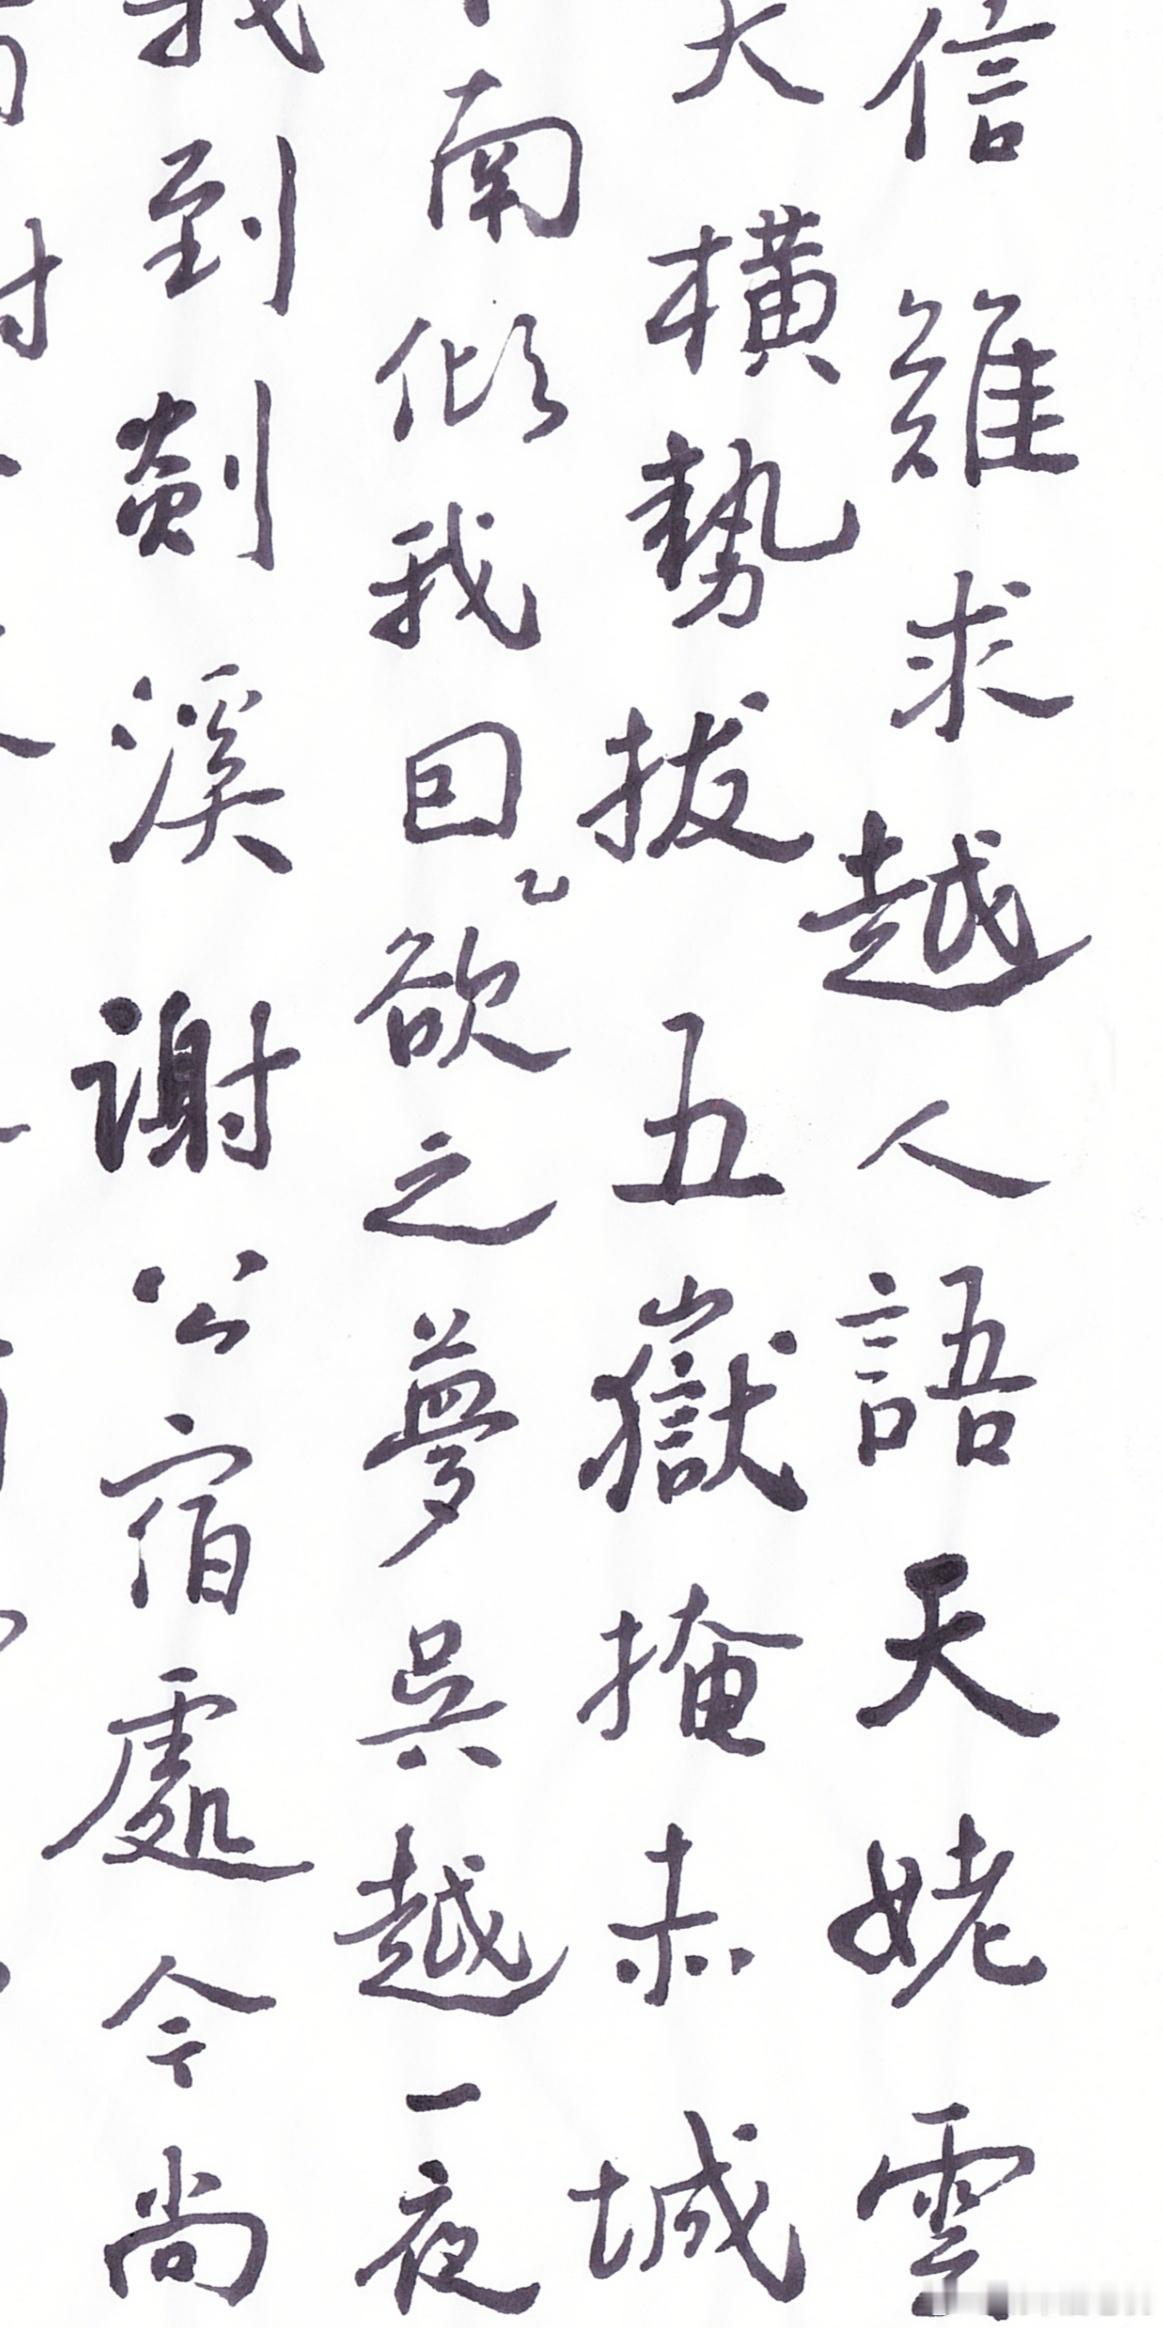 信難求越人語天姥雲
天橫勢拔五嶽掩赤城
南傾我因乙欲之夢吳越一夜
我到剡溪謝公宿處今尚